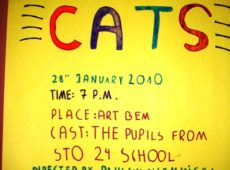 CATS
28TH JANUARY 2010
TIME: 7 P.M.
PLACE: ART BEM
CAST: THE PUPILS FROM
STO 24 SCHOOL
DIRECTED BY